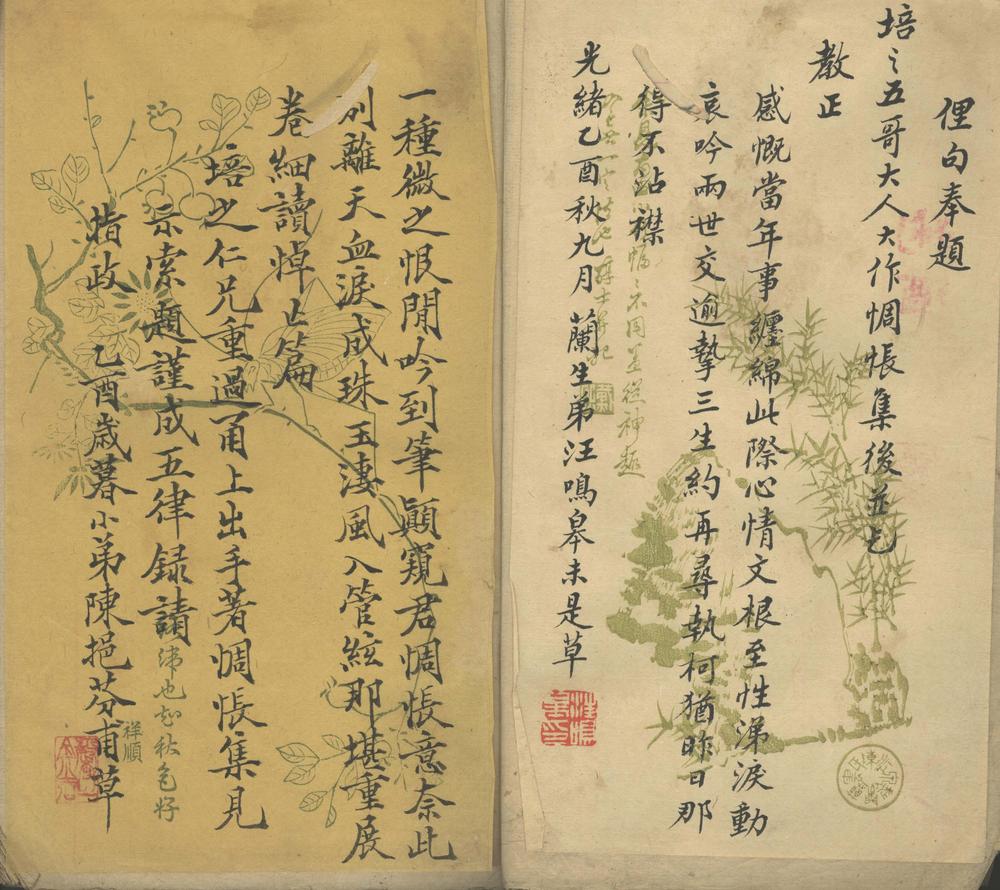 俚句奉題
培之五哥大人大作惆悵集後並乞
教正
感慨當年事纏綿此際心情文根至性涕淚動
哀吟兩世交逾摯三生約再尋執柯猶昨日那
得不沾襟
光緒乙酉秋九月蘭生弟汪鳴皋未是草
一種微之恨閒吟到筆顛窺君惆悵意奈此
別離天血淚成珠玉淒風入管絃那堪重展
卷細讀悼亡篇
培之仁兄重過甬上出手著惆悵集見
示索題謹成五律録請
指政
乙酉歲暮小弟陳挹芬甫草
祥順